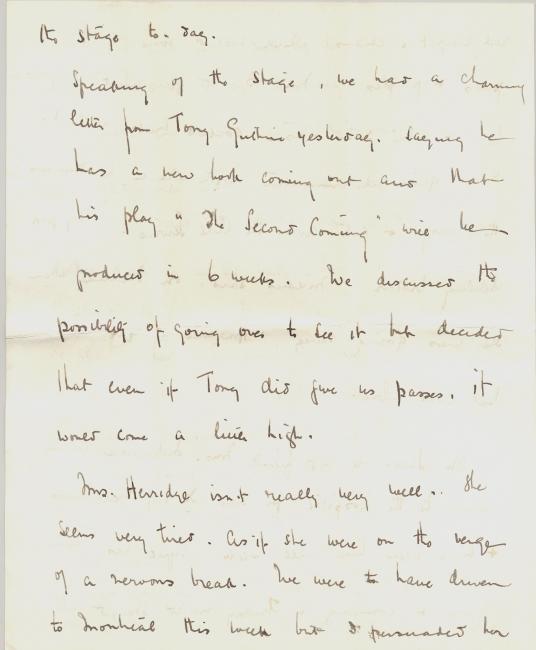 the stage to-day.
Speaking of the stage, we had a charming
letter from Tony Guthrie yesterday. Saying he
has a new book coming out and that
his play "The Second Coming" will be
produced in 6 weeks. We discussed the
possibility of going over to see it but decided
that even if Tony did give us passes, it
would come a little high.
Mrs. Herridge isn't really very well.. She
seems very tired. As if she were on the verge
of a nervous break. We were to have driven
to Montreal this week but I persuaded her